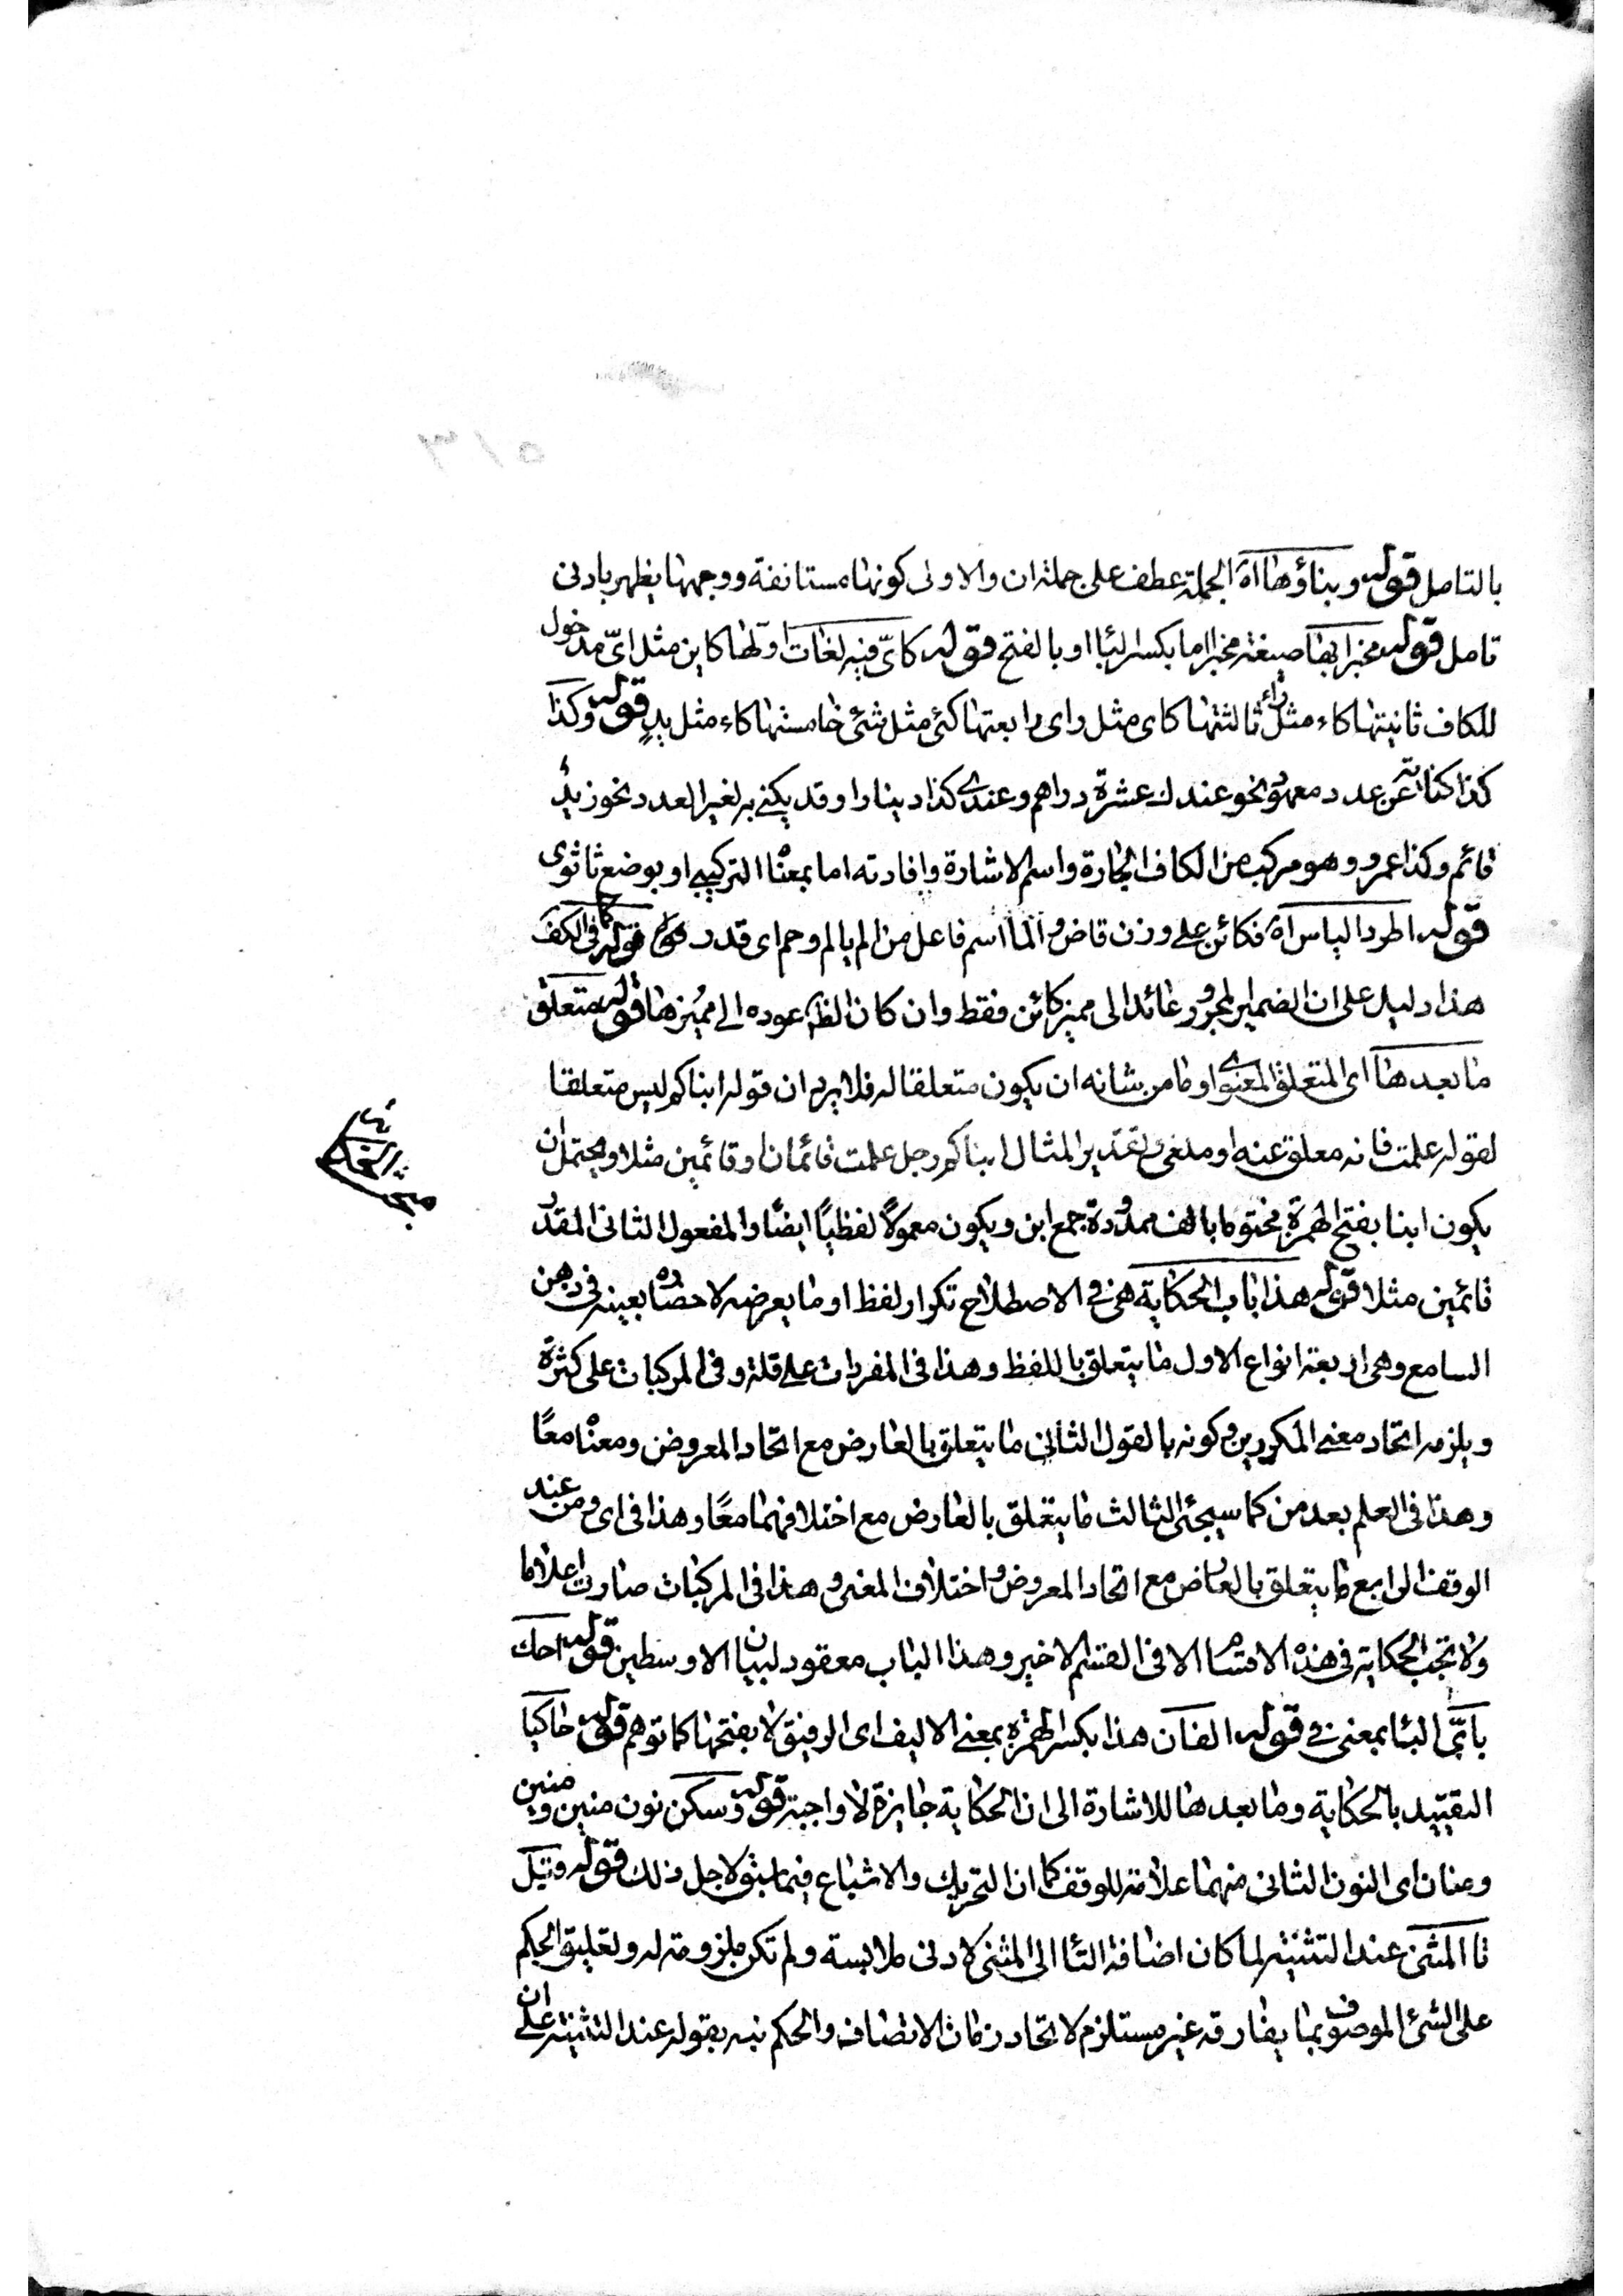 بالتامل قوله وبناؤها اه الجملة عطف على جملة ان والاولى كونها مستانفة ووجهها يظهر بادنى
تامل قوله مخبرا بها صيغة مخبرا اما بكسر البا او بالفتح قوله كاىّ فيه لغات اولها كاين مثل اىّ مدخول
للكاف ثانيتها كاء مثل راء ثالثتها كاى مثل راى رابعتها كئ مثل شئ خامستها كاء مثل يدٍ قوله وكذا
كذا كناية عن عدد معهود نحو عندك عشرة دراهم وعندى كذا دينارا وقد يكنى به لغير العدد نحو زيدٌ
قائم وكذا عمرو وهو مركب من الكاف الجارة واسم الاشارة وافادته اما بمعنا التركيبى او بوضع ثانوى
قوله اطرد الياس اه فكائن على وزن قاض والما اسم فاعل من الم يالم وحم اى قدر قوله كما فى الكف
هذا دليل على ان الضمير المجرور عائد الى مميز كائن فقط وان كان الظ عوده الى مميزها قوله متعلق
ما بعدها اى المتعلق المعنوى او ما من شانه ان يكون متعلقا له فلا يرد ان قوله ابناكم ليس متعلقا
لقوله علمت فانه معلق عنه او ملغى وتقدير المثال ابناكم رجل علمت قائمان او قائمين مثلا ويحتمل ان
يكون ابنا بفتح الهمزة مختوما بالف ممدودة جمع ابن ويكون معمولاً لفظياً ايضاً والمفعول الثانى المقدر
قائمين مثلا قوله هذا باب الحكاية هى فى الاصطلاح تكرار لفظ او ما يعرضه لاحضاره بعينه فى ذهن
السامع وهى اربعة انواع الاول ما يتعلق باللفظ وهذا فى المفردات على قلة وفى المركبات على كثرة
ويلزمه اتحاد معنى المكررين وكونه بالقول الثانى ما يتعلق بالعارض مع اتحاد المعروض ومعنا معًا
وهذا فى العلم بعد من كما سيجئ الثالث ما يتعلق بالعارض مع اختلافهما معًا وهذا فى اى ومن عند
الوقف الرابع ما يتعلق بالعارض مع اتحاد المعروض واختلاف المعنى وهذا فى المركبات صارت اعلاما
ولا تجب الحكاية فى هذه الاقسام الا فى القسم الاخير وهذا الباب معقود لبيان الاوسطين قوله احك
باىّ البا بمعنى فى قوله الفان هذا بكسر الهمزة بمعنى الاليف اى الرفيق لا بفتحها كما توهم قوله حاكيا
التقييد بالحكاية وما بعدها للاشارة الى ان الحكاية جايزة لا واجبة قوله وسكن نون منين ومنين
ومنان اى النون الثانى منهما علامة للوقف كما ان التحريك والاشباع فيما سبق لاجل ذلك قوله وقيل
تا المثنى عند التثنية لما كان اضافة التا الى المثنى لادنى ملابسة ولم تكن ملزومة له وتعليق الحكم
على الشئ الموصوف بما يفارقه غير مستلزم لاتحاد زمان الاتصاف والحكم نبه بقوله عند التثنية على ان